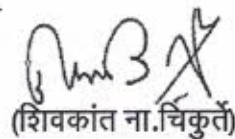 (शिवकांत ना.चिकुर्ते)